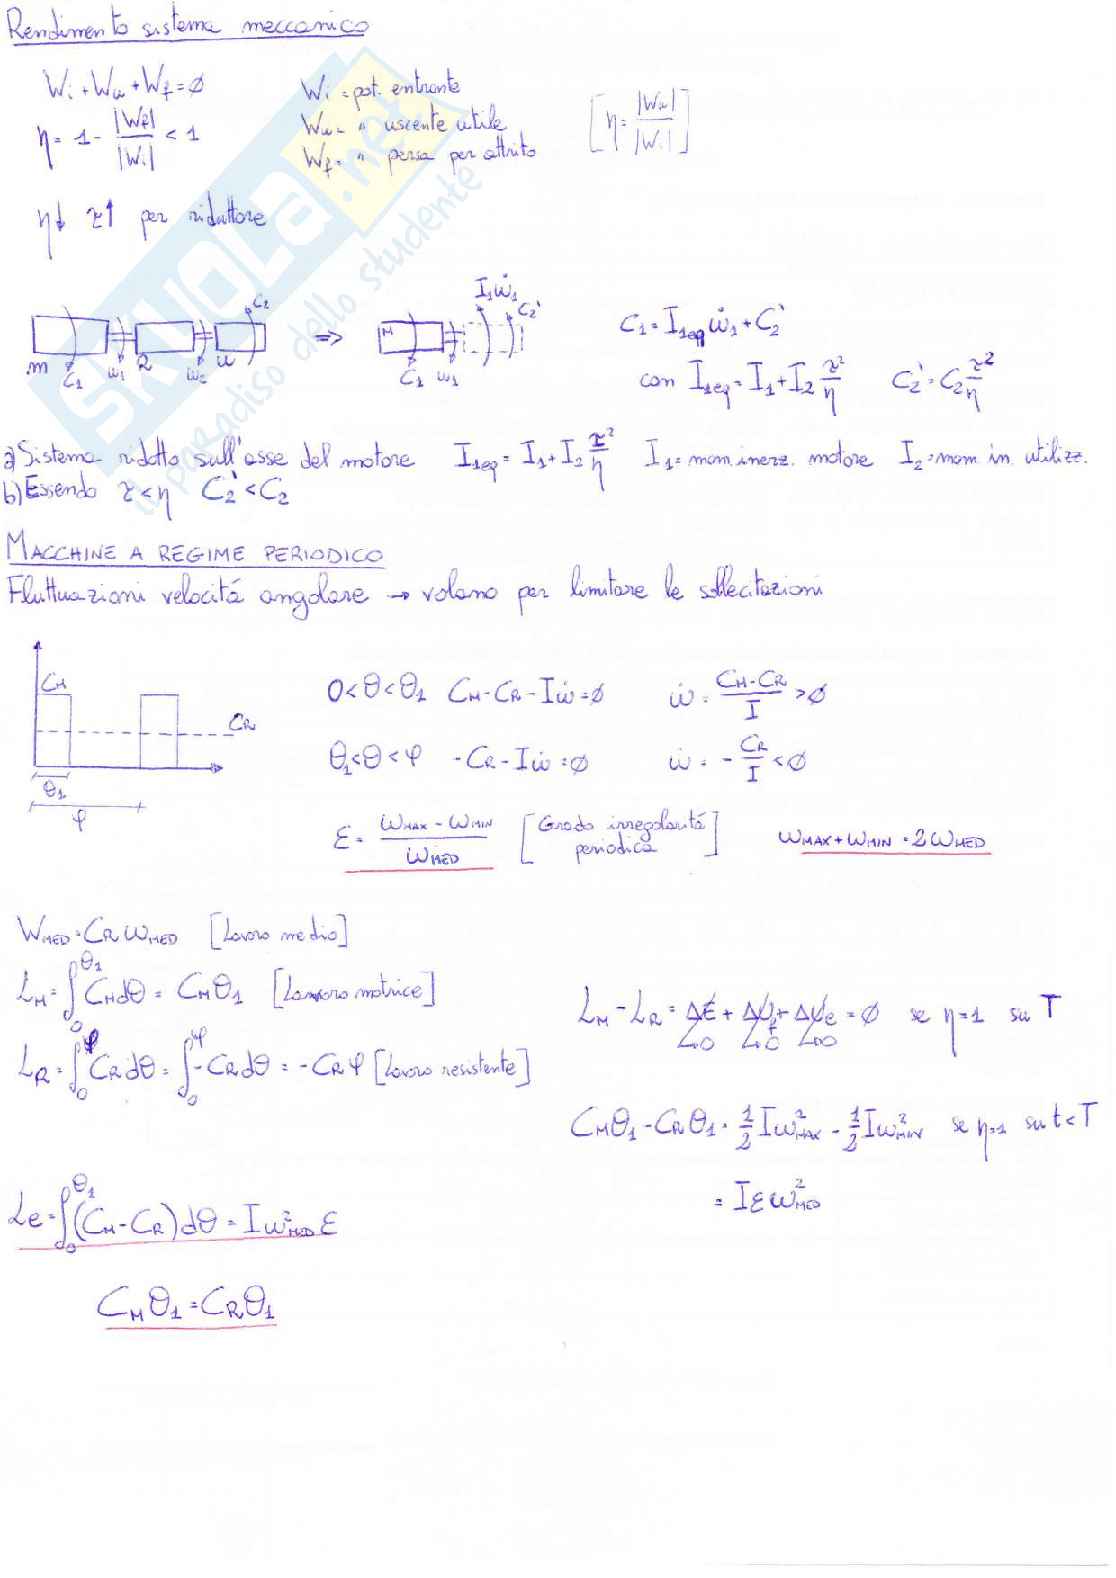 Rendimento sistema meccanico
Wi+Wu+Wf=∅
Wi = pot. entrante
η = 1 - |Wf|/|Wi| < 1
Wu = " uscente utile
Wf = " persa per attrito
[η = |Wu|/|Wi|]
η↓ τ↑ per riduttore
m C1 ω1 R ω2 u C2
⇒
M C1 ω1 I1ω̇1 C2'
C1 = I1eq ω̇1 + C2'
con I1eq = I1 + I2 τ²/η C2' = C2 τ²/η
a) Sistema ridotto sull'asse del motore I1eq = I1 + I2 τ²/η I1 = mom. inerz. motore I2 = mom in. utilizz.
b) Essendo τ<η C2' < C2
MACCHINE A REGIME PERIODICO
Fluttuazioni velocitá angolare → volano per limitare le sollecitazioni
CM
CR
θ1
φ
0<θ<θ1 CM - CR - Iω̇ = ∅ ω̇ = (CM - CR)/I > ∅
θ1<θ<φ -CR - Iω̇ = ∅ ω̇ = - CR/I < ∅
ε = (ωMAX - ωMIN)/ωMED [Grado irregolaritá periodica] ωMAX + ωMIN = 2ωMED
WMED = CR ωMED [Lavoro medio]
LM = ∫0^θ1 CM dθ = CM θ1 [Lavoro motrice]
LR = ∫0^φ CR dθ = ∫0^φ -CR dθ = -CR φ [Lavoro resistente]
LM - LR = ΔE + ΔUf + ΔUe = ∅ se η=1 su T
CM θ1 - CR θ1 = 1/2 Iω²MAX - 1/2 Iω²MIN se η=1 su t<T
= Iεω²MED
Le = ∫0^θ1 (CM - CR) dθ = Iω²MED ε
CM θ1 = CR θ1
SKUOLA.net
il paradiso dello studente